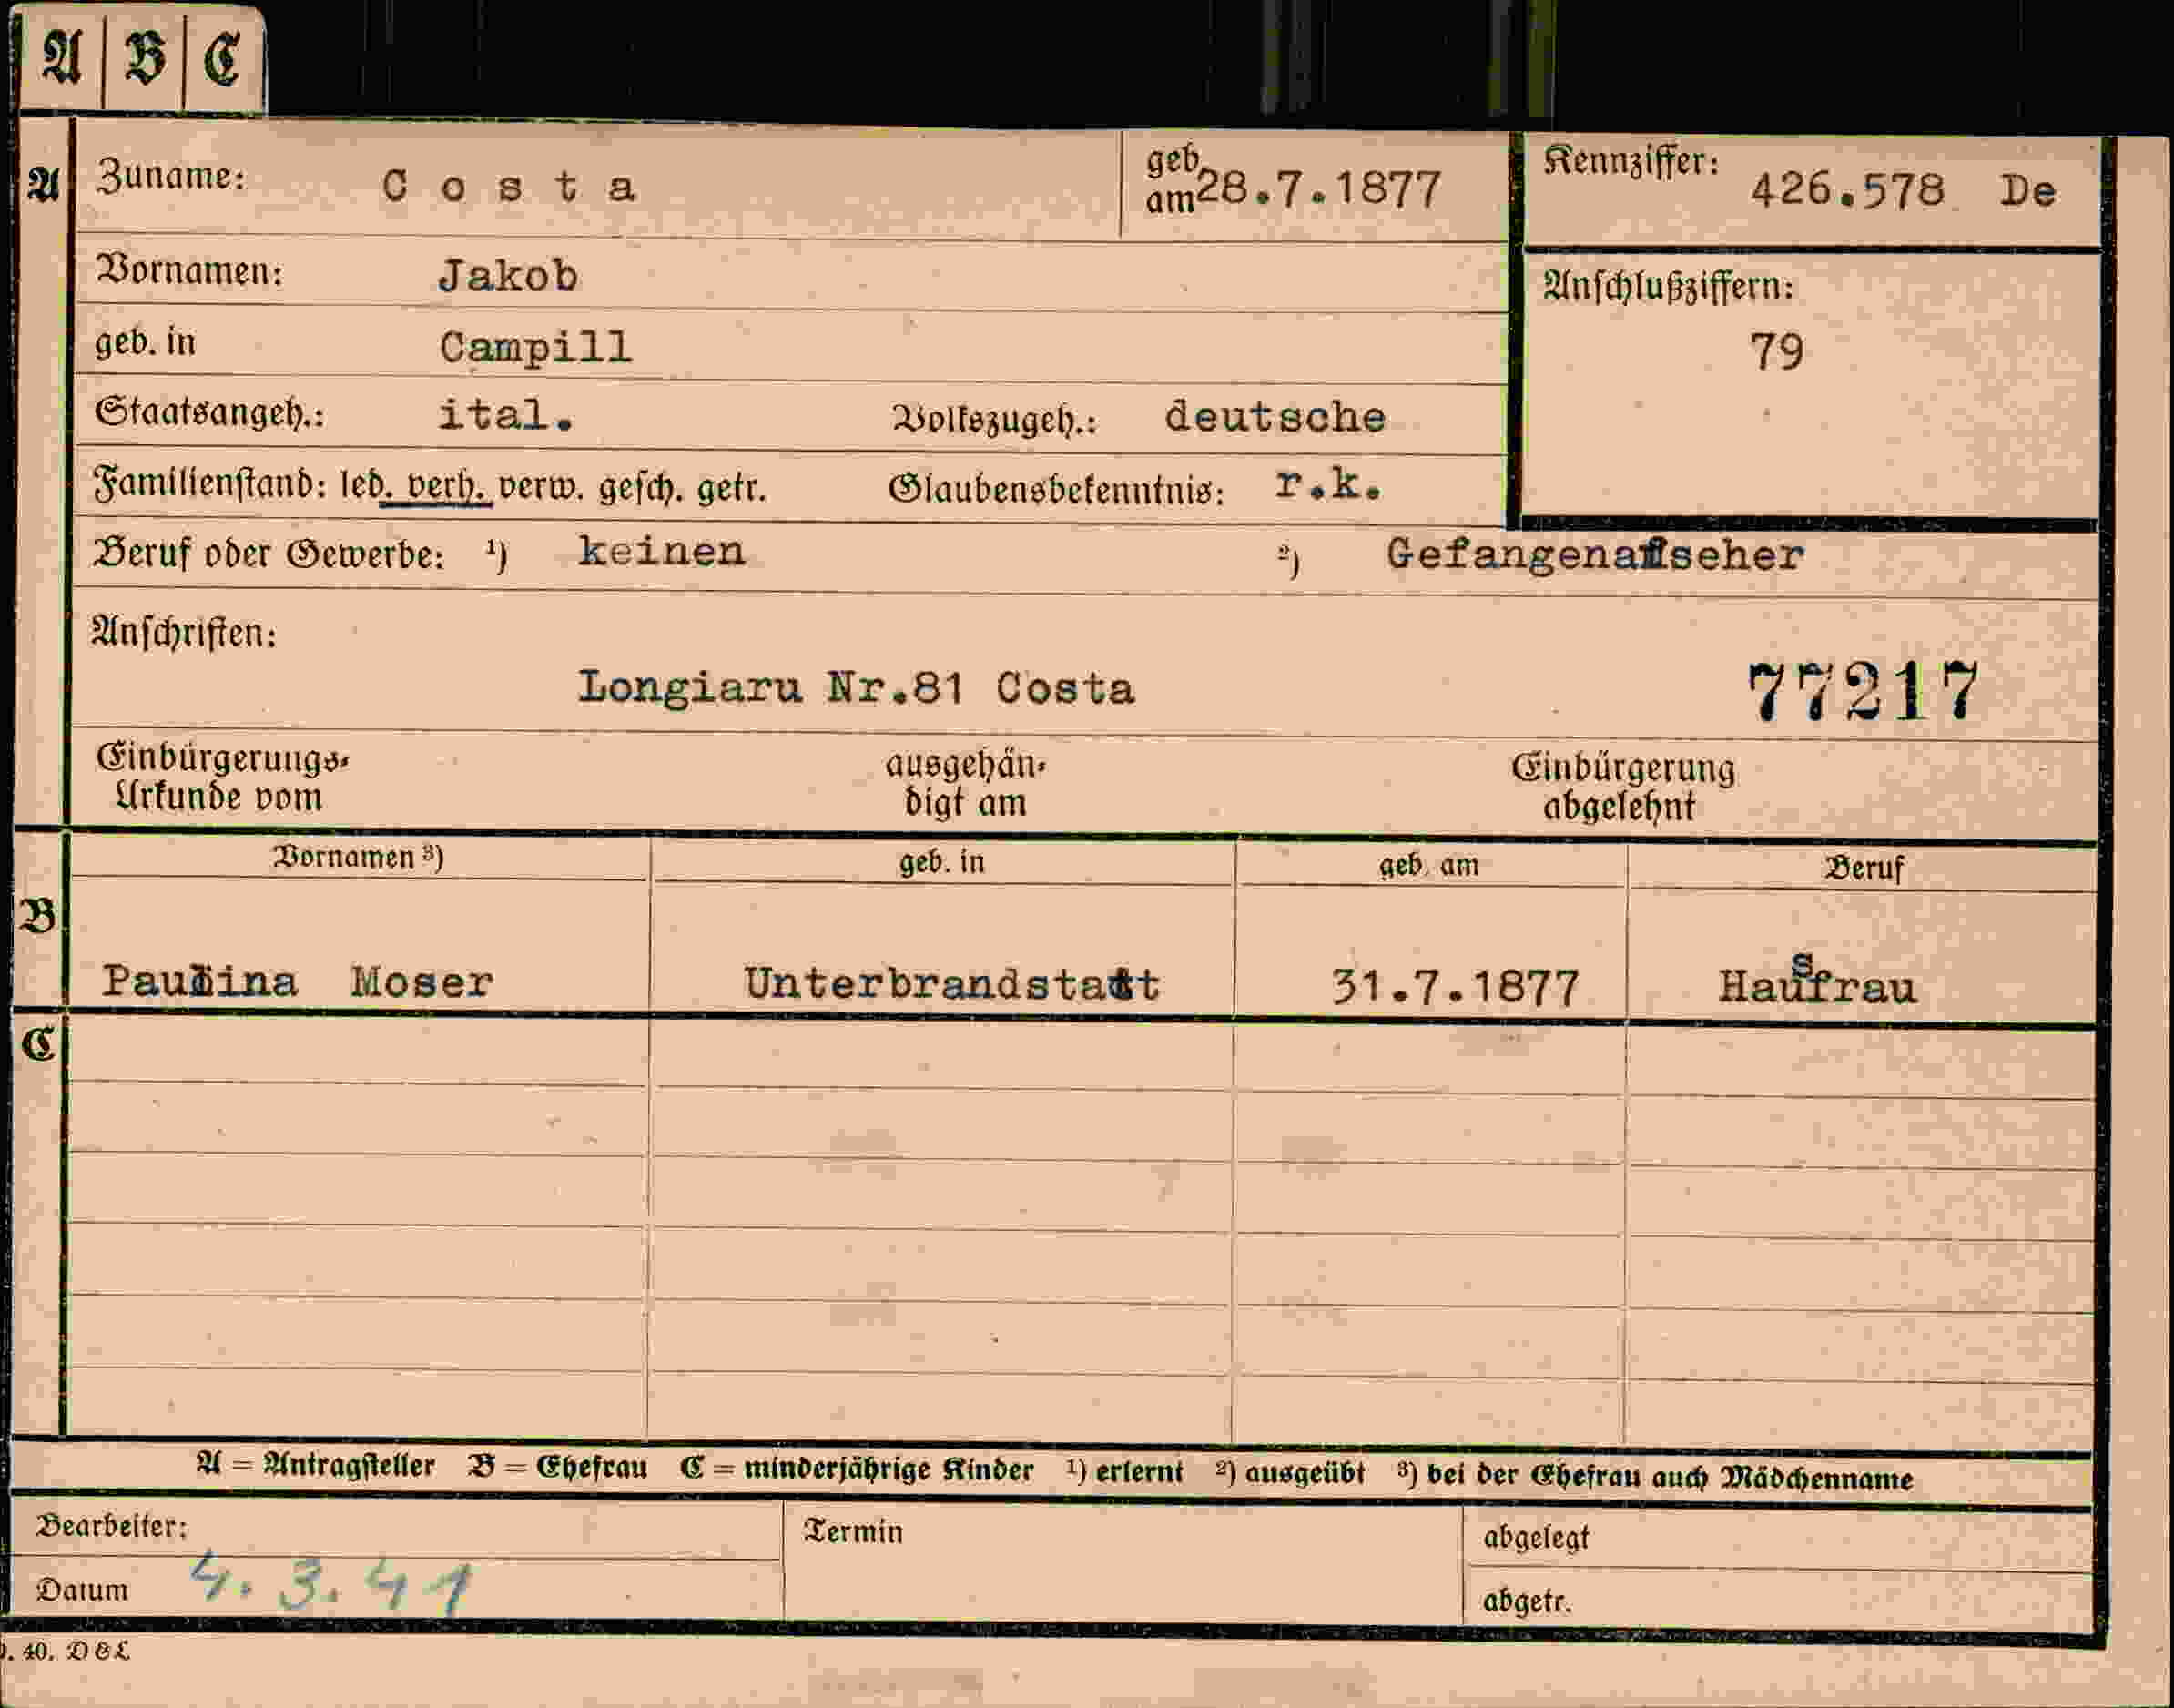 A B C
A Zuname: Costa geb. am 28.7.1877 Kennziffer: 426.578 De
Vornamen: Jakob
Anschlußziffern:
geb. in Campill 79
Staatsangeh.: ital. Volkszugeh.: deutsche
Familienstand: led. verh. verw. gesch. getr. Glaubensbekenntnis: r.k.
Beruf oder Gewerbe: ¹) keinen ²)
Anschriften:
Longiaru Nr.81 Costa 77217
Einbürgerungs- ausgehän- Einbürgerung
Urkunde vom digt am abgelehnt
Vornamen ³) geb. in geb. am Beruf
B
Paulina Moser Unterbrandstatt 31.7.1877 Hausfrau
C
A = Antragsteller B = Ehefrau C = minderjährige Kinder ¹) erlernt ²) ausgeübt ³) bei der Ehefrau auch Mädchenname
Bearbeiter: Termin abgelegt
Datum 4.3.41 abgetr.
. 40. DEL